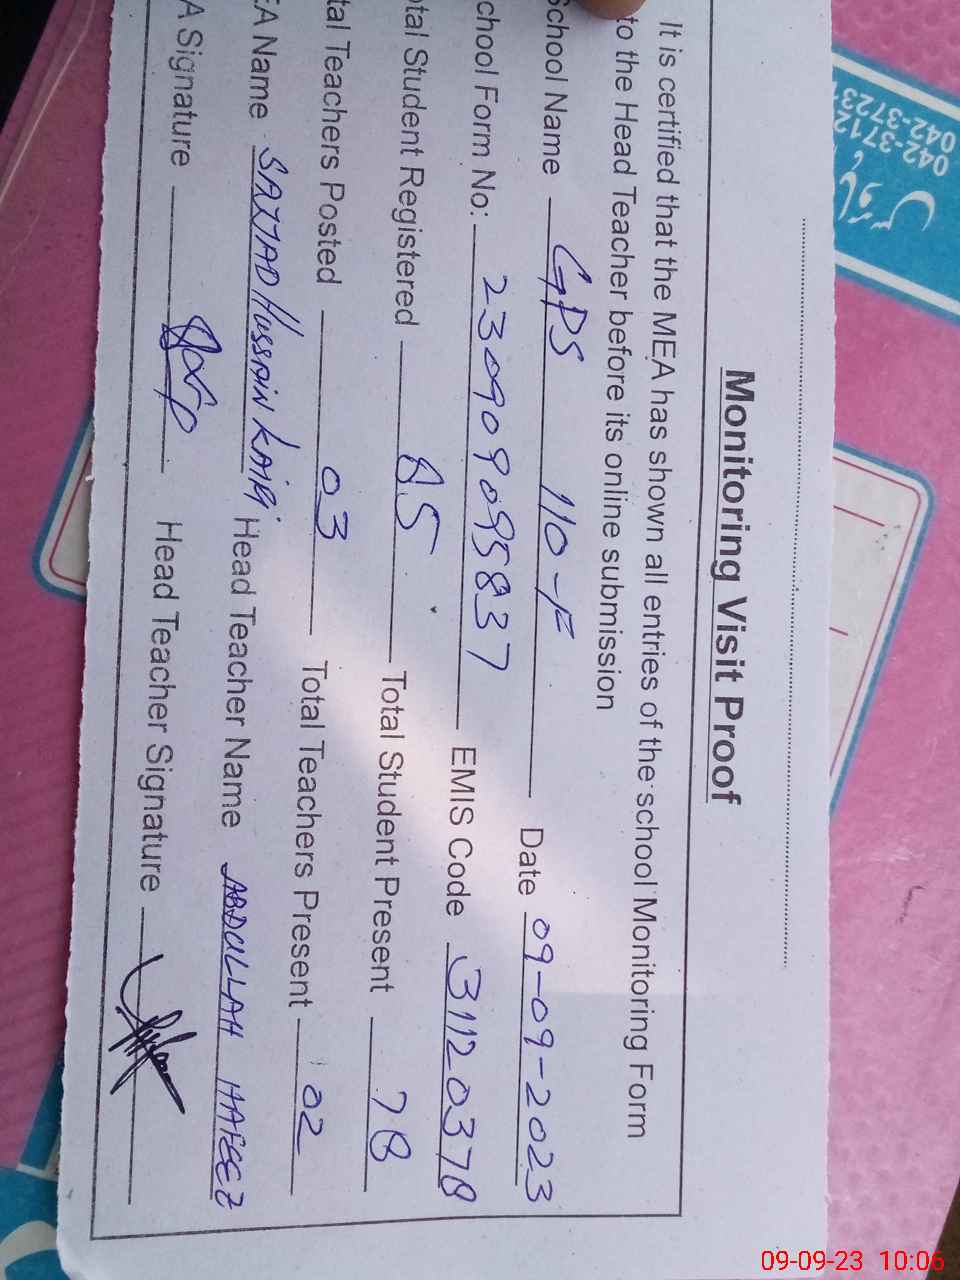 Monitoring Visit Proof
It is certified that the MEA has shown all entries of the school Monitoring Form
to the Head Teacher before its online submission
School Name GPS 110-F Date 09-09-2023
chool Form No: 230909095837 EMIS Code 31120378
otal Student Registered 85 Total Student Present 78
tal Teachers Posted 03 Total Teachers Present 02
EA Name SAJJAD HUSSAIN Head Teacher Name ABDULLAH HAFEEZ
A Signature Head Teacher Signature
042-3712
042-3723
09-09-23 10:06